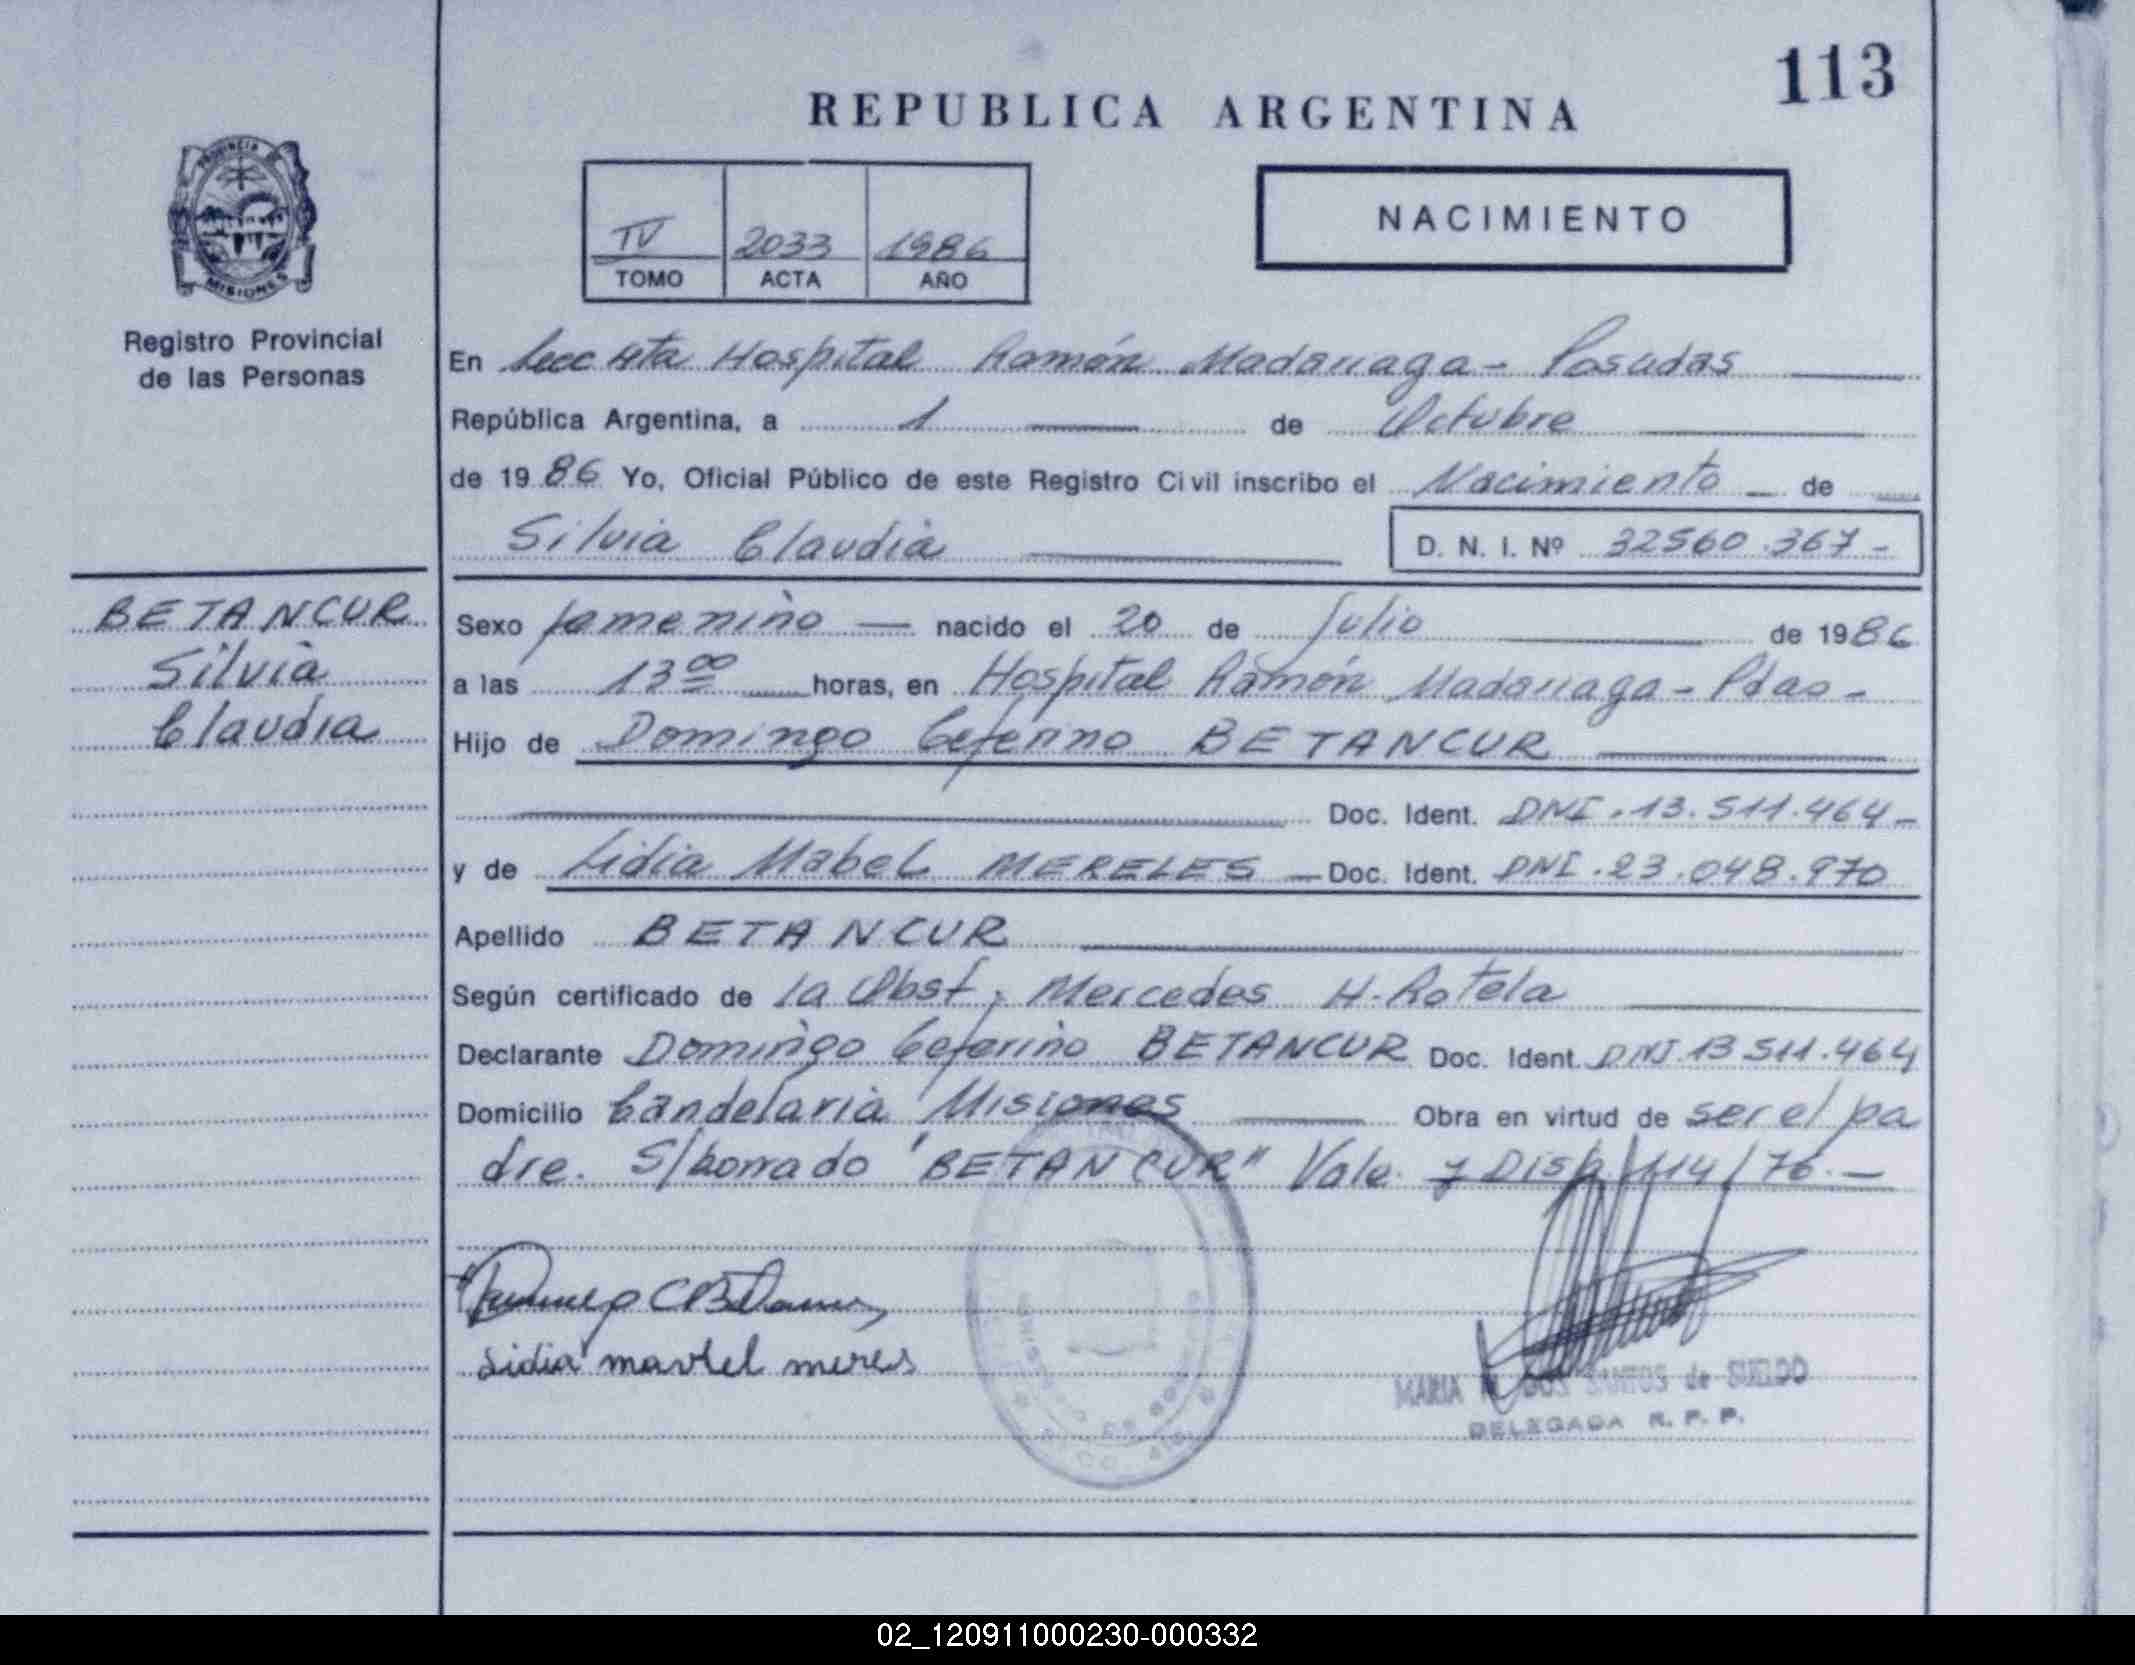 113
REPUBLICA ARGENTINA
IV 2033 1986
TOMO ACTA AÑO
NACIMIENTO
PROVINCIA DE
MISIONES
Registro Provincial
de las Personas
En Secc 4ta Hospital Ramón Madariaga - Posadas
República Argentina, a 1 de Octubre
de 1986 Yo, Oficial Público de este Registro Civil inscribo el Nacimiento de
Silvia Claudia D. N. I. Nº 32560.367-
BETANCUR
Silvia
Claudia
Sexo femenino nacido el 20 de Julio de 1986
a las 13 00 horas, en Hospital Ramón Madariaga - Pdas -
Hijo de Domingo Ceferino BETANCUR
Doc. Ident. DNI. 13.511.464-
y de Lidia Mabel MERELES - Doc. Ident. DNI. 23.048.970
Apellido BETANCUR
Según certificado de la Obst, Mercedes H. Rotela
Declarante Domingo Ceferino BETANCUR Doc. Ident. DNI. 13511.464
Domicilio Candelaria Misiones Obra en virtud de ser el pa
dre. S/borrado "BETANCUR" Vale. y Disp. 114/76.-
Lidia mavlel meres
MARIA DOS SANTOS de SUELDO
DELEGADA R. P. P.
02_120911000230-000332